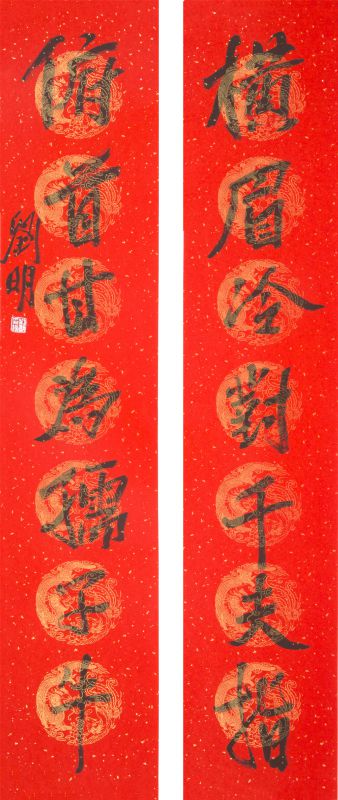 橫眉冷對千夫指
俯首甘為孺子牛
劉明